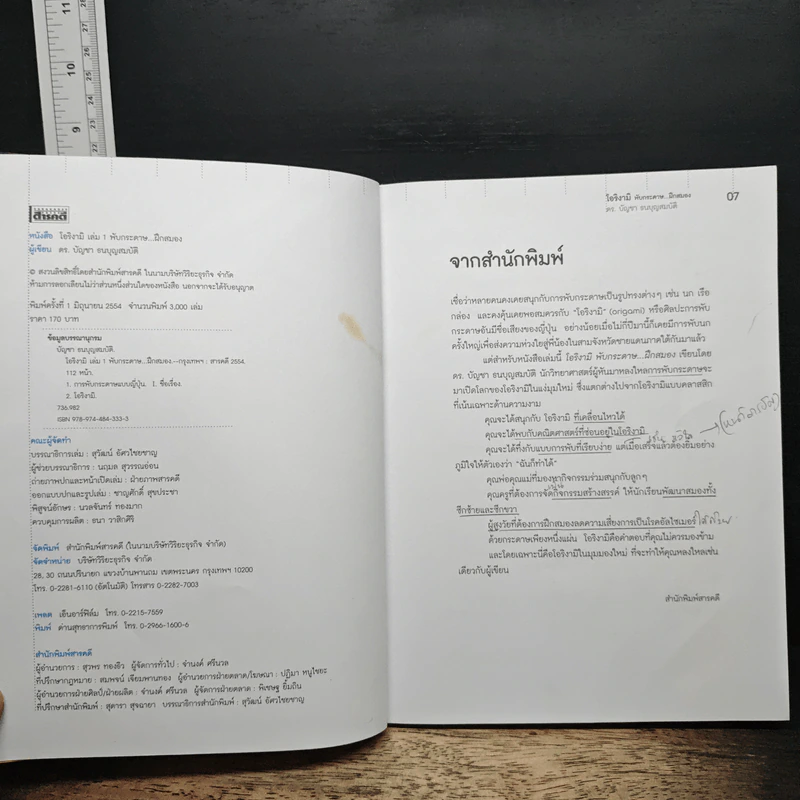 11
10
9
28
27
26
25
24
23
22
สารคดี
หนังสือ โอริงามิ เล่ม 1 พับกระดาษ...ฝึกสมอง
ผู้เขียน ดร. บัญชา ธนบุญสมบัติ
© สงวนลิขสิทธิ์โดยสำนักพิมพ์สารคดี ในนามบริษัทวิริยะธุรกิจ จำกัด
ห้ามการลอกเลียนไม่ว่าส่วนหนึ่งส่วนใดของหนังสือ นอกจากจะได้รับอนุญาต
พิมพ์ครั้งที่ 1 มิถุนายน 2554 จำนวนพิมพ์ 3,000 เล่ม
ราคา 170 บาท
ข้อมูลบรรณานุกรม
บัญชา ธนบุญสมบัติ.
โอริงามิ เล่ม 1 พับกระดาษ...ฝึกสมอง.--กรุงเทพฯ : สารคดี 2554.
112 หน้า.
1. การพับกระดาษแบบญี่ปุ่น. I. ชื่อเรื่อง.
2. โอริงามิ.
736.982
ISBN 978-974-484-333-3
คณะผู้จัดทำ
บรรณาธิการเล่ม : สุวัฒน์ อัศวไชยชาญ
ผู้ช่วยบรรณาธิการ : นฤมล สุวรรณอ่อน
ถ่ายภาพปกและหน้าเปิดเล่ม : ฝ่ายภาพสารคดี
ออกแบบปกและรูปเล่ม : ชาญศักดิ์ สุขประชา
พิสูจน์อักษร : นวลจันทร์ ทองมาก
ควบคุมการผลิต : ธนา วาสิกศิริ
จัดพิมพ์ สำนักพิมพ์สารคดี (ในนามบริษัทวิริยะธุรกิจ จำกัด)
จัดจำหน่าย บริษัทวิริยะธุรกิจ จำกัด
28, 30 ถนนปรินายก แขวงบ้านพานถม เขตพระนคร กรุงเทพฯ 10200
โทร. 0-2281-6110 (อัตโนมัติ) โทรสาร 0-2282-7003
เพลต เอ็นอาร์ฟิล์ม โทร. 0-2215-7559
พิมพ์ ด่านสุทธาการพิมพ์ โทร. 0-2966-1600-6
สำนักพิมพ์สารคดี
ผู้อำนวยการ : สุวพร ทองธิว ผู้จัดการทั่วไป : จำนงค์ ศรีนวล
ที่ปรึกษากฎหมาย : สมพจน์ เจียมพานทอง ผู้อำนวยการฝ่ายตลาด/โฆษณา : ปฏิมา หนูไชยะ
ผู้อำนวยการฝ่ายศิลป์/ฝ่ายผลิต : จำนงค์ ศรีนวล ผู้จัดการฝ่ายตลาด : พิเชษฐ ยิ้มถิน
ที่ปรึกษาสำนักพิมพ์ : สุดารา สุจฉายา บรรณาธิการสำนักพิมพ์ : สุวัฒน์ อัศวไชยชาญ
โอริงามิ พับกระดาษ...ฝึกสมอง 07
ดร. บัญชา ธนบุญสมบัติ
จากสำนักพิมพ์
เชื่อว่าหลายคนคงเคยสนุกกับการพับกระดาษเป็นรูปทรงต่างๆ เช่น นก เรือ
กล่อง และคงคุ้นเคยพอสมควรกับ "โอริงามิ" (origami) หรือศิลปะการพับ
กระดาษอันมีชื่อเสียงของญี่ปุ่น อย่างน้อยเมื่อไม่กี่ปีมานี้ก็เคยมีการพับนก
ครั้งใหญ่เพื่อส่งความห่วงใยสู่พี่น้องในสามจังหวัดชายแดนภาคใต้กันมาแล้ว
แต่สำหรับหนังสือเล่มนี้ โอริงามิ พับกระดาษ...ฝึกสมอง เขียนโดย
ดร. บัญชา ธนบุญสมบัติ นักวิทยาศาสตร์ผู้หันมาหลงใหลการพับกระดาษจะ
มาเปิดโลกของโอริงามิในแง่มุมใหม่ ซึ่งแตกต่างไปจากโอริงามิแบบคลาสสิก
ที่เน้นเฉพาะด้านความงาม
คุณจะได้สนุกกับ โอริงามิ ที่เคลื่อนไหวได้
คุณจะได้พบกับคณิตศาสตร์ที่ซ่อนอยู่ในโอริงามิ
คุณจะได้ทึ่งกับแบบการพับที่เรียบง่าย แต่เมื่อเสร็จแล้วต้องยิ้มอย่าง
ภูมิใจให้ตัวเองว่า "ฉันก็ทำได้"
คุณพ่อคุณแม่ที่มองหากิจกรรมร่วมสนุกกับลูกๆ
คุณครูที่ต้องการจัดกิจกรรมสร้างสรรค์ ให้นักเรียนพัฒนาสมองทั้ง
ซีกซ้ายและซีกขวา
ผู้สูงวัยที่ต้องการฝึกสมองลดความเสี่ยงการเป็นโรคอัลไซเมอร์
ด้วยกระดาษเพียงหนึ่งแผ่น โอริงามิคือคำตอบที่คุณไม่ควรมองข้าม
และโดยเฉพาะนี่คือโอริงามิในมุมมองใหม่ ที่จะทำให้คุณหลงใหลเช่น
เดียวกับผู้เขียน
สำนักพิมพ์สารคดี